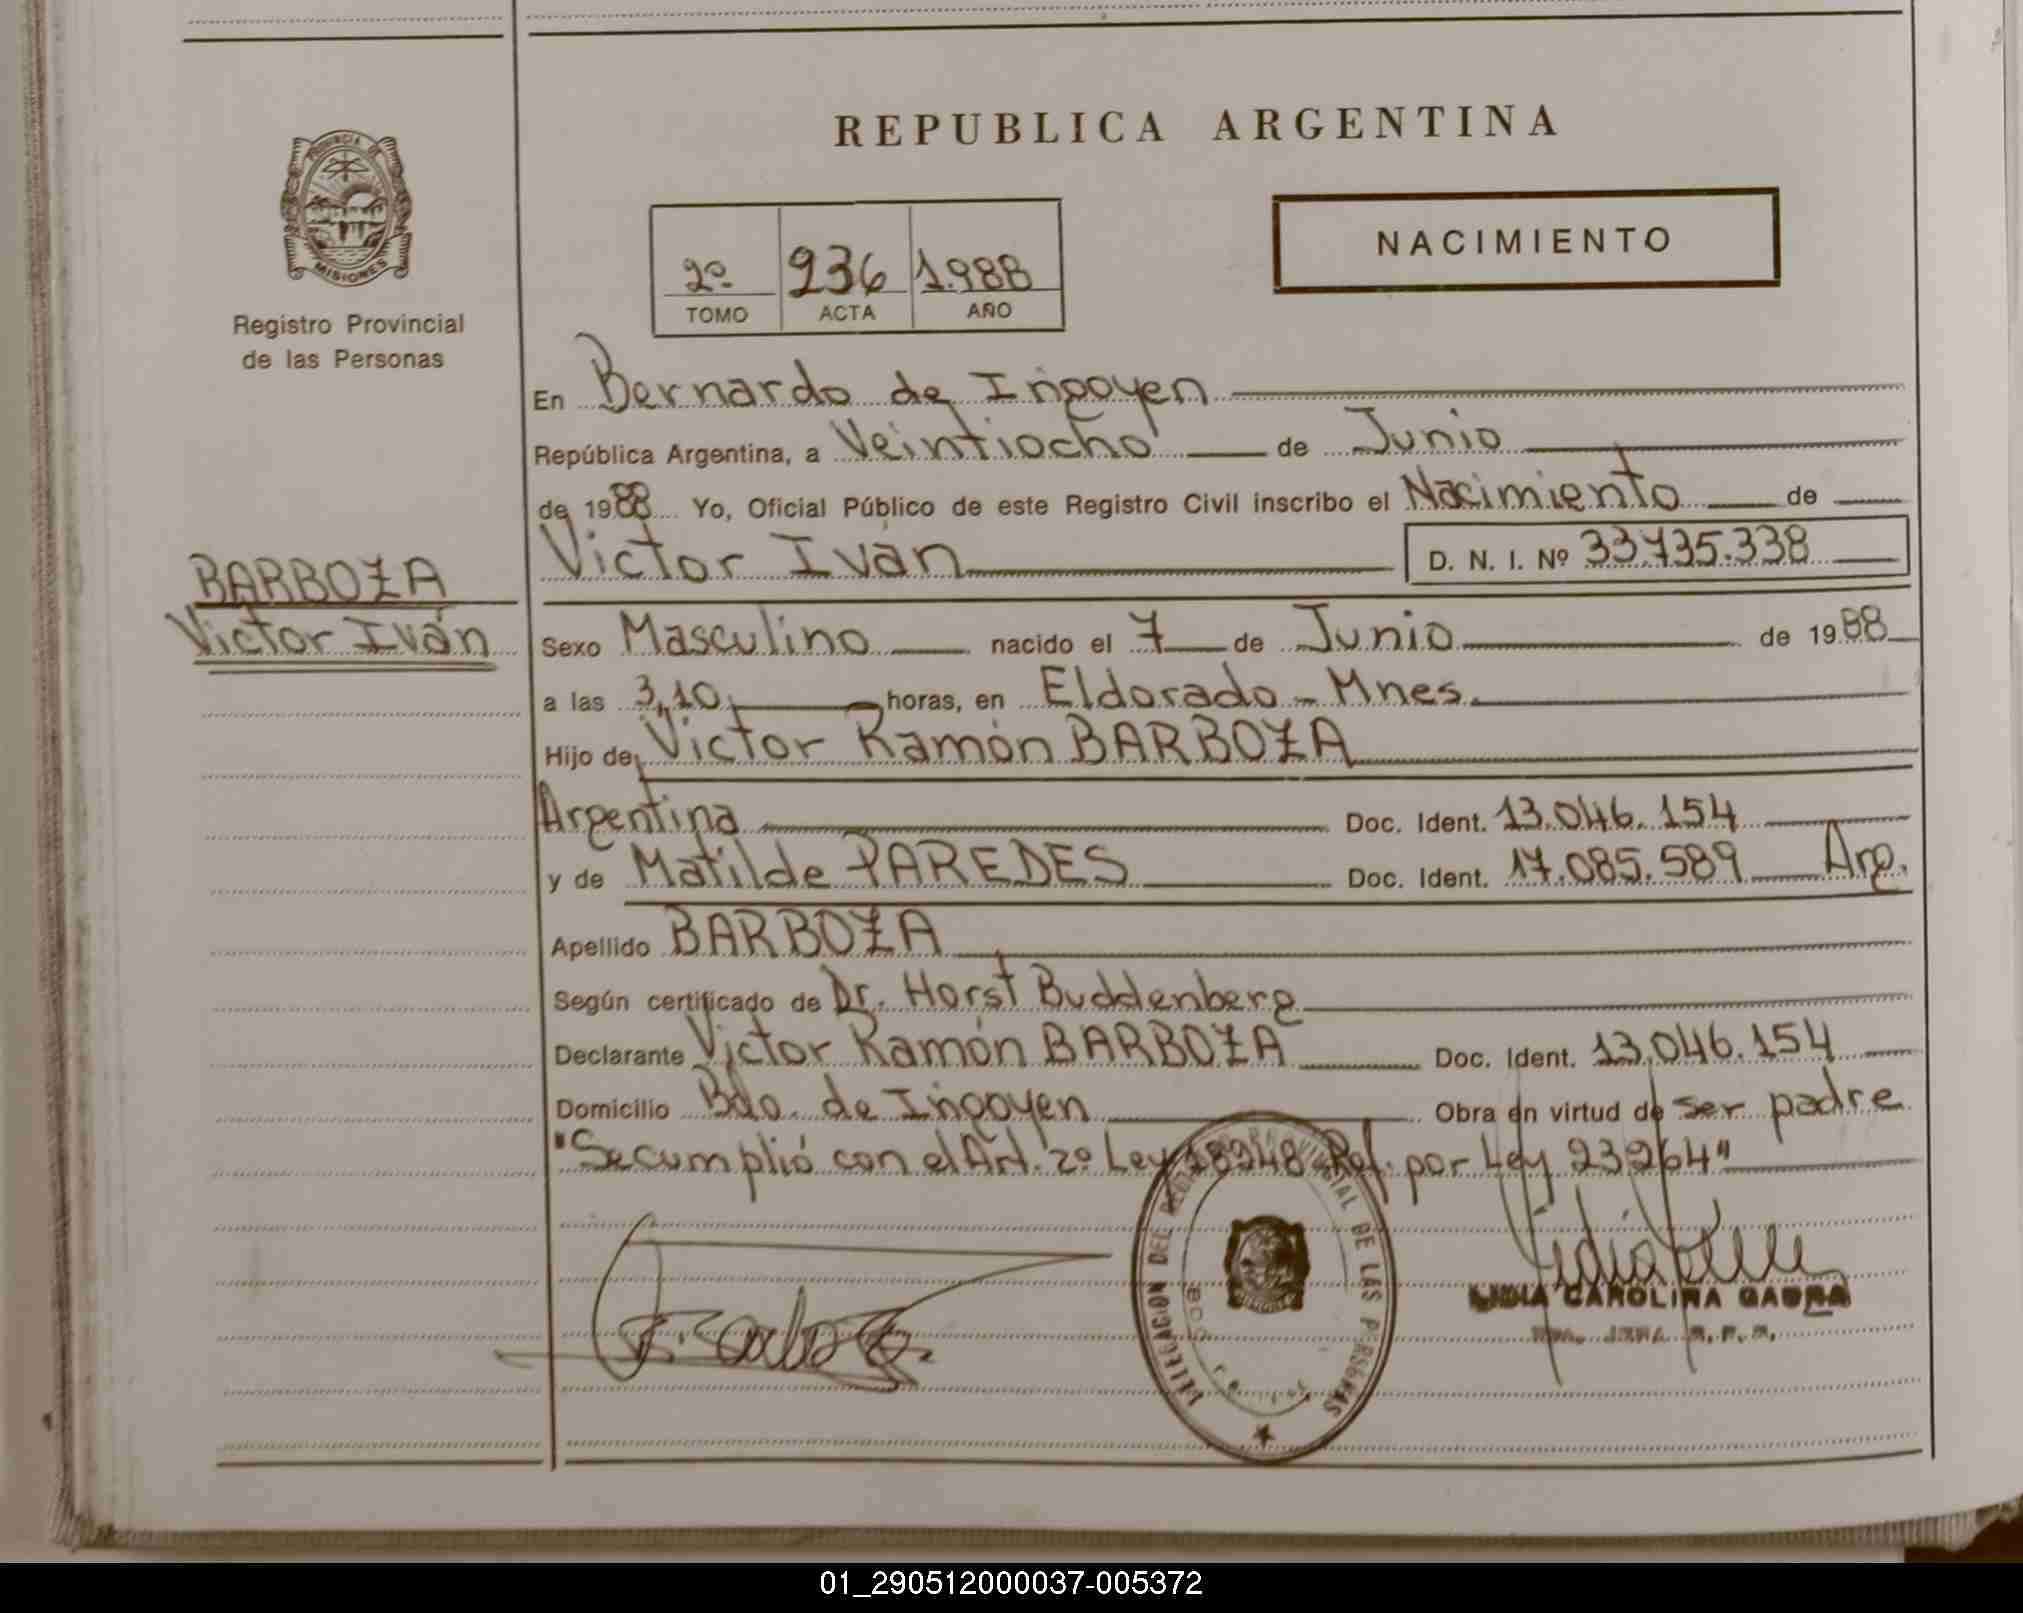 REPUBLICA ARGENTINA
PROVINCIA DE
MISIONES
Registro Provincial
de las Personas
NACIMIENTO
2º 236 1.988
TOMO ACTA AÑO
En Bernardo de Irigoyen
República Argentina, a Veintiocho de Junio
de 1988 Yo, Oficial Público de este Registro Civil inscribo el Nacimiento de
Victor Iván D. N. I. Nº 33.735.338
BARBOZA
Victor Iván
Sexo Masculino nacido el 7 de Junio de 1988
a las 3,10 horas, en Eldorado - Mnes.
Hijo de Victor Ramón BARBOZA
Argentina Doc. Ident. 13.046.154
y de Matilde PAREDES Doc. Ident. 17.085.589 Arg.
Apellido BARBOZA
Según certificado de Dr. Horst Buddenberg
Declarante Victor Ramón BARBOZA Doc. Ident. 13.046.154
Domicilio Bdo. de Irigoyen Obra en virtud de ser padre
"Se cumplió con el Art. 2º Ley 18248 Ref. por Ley 23264"
DELEGACION DEL REGISTRO PROVINCIAL DE LAS PERSONAS
LIDIA CAROLINA
01_290512000037-005372